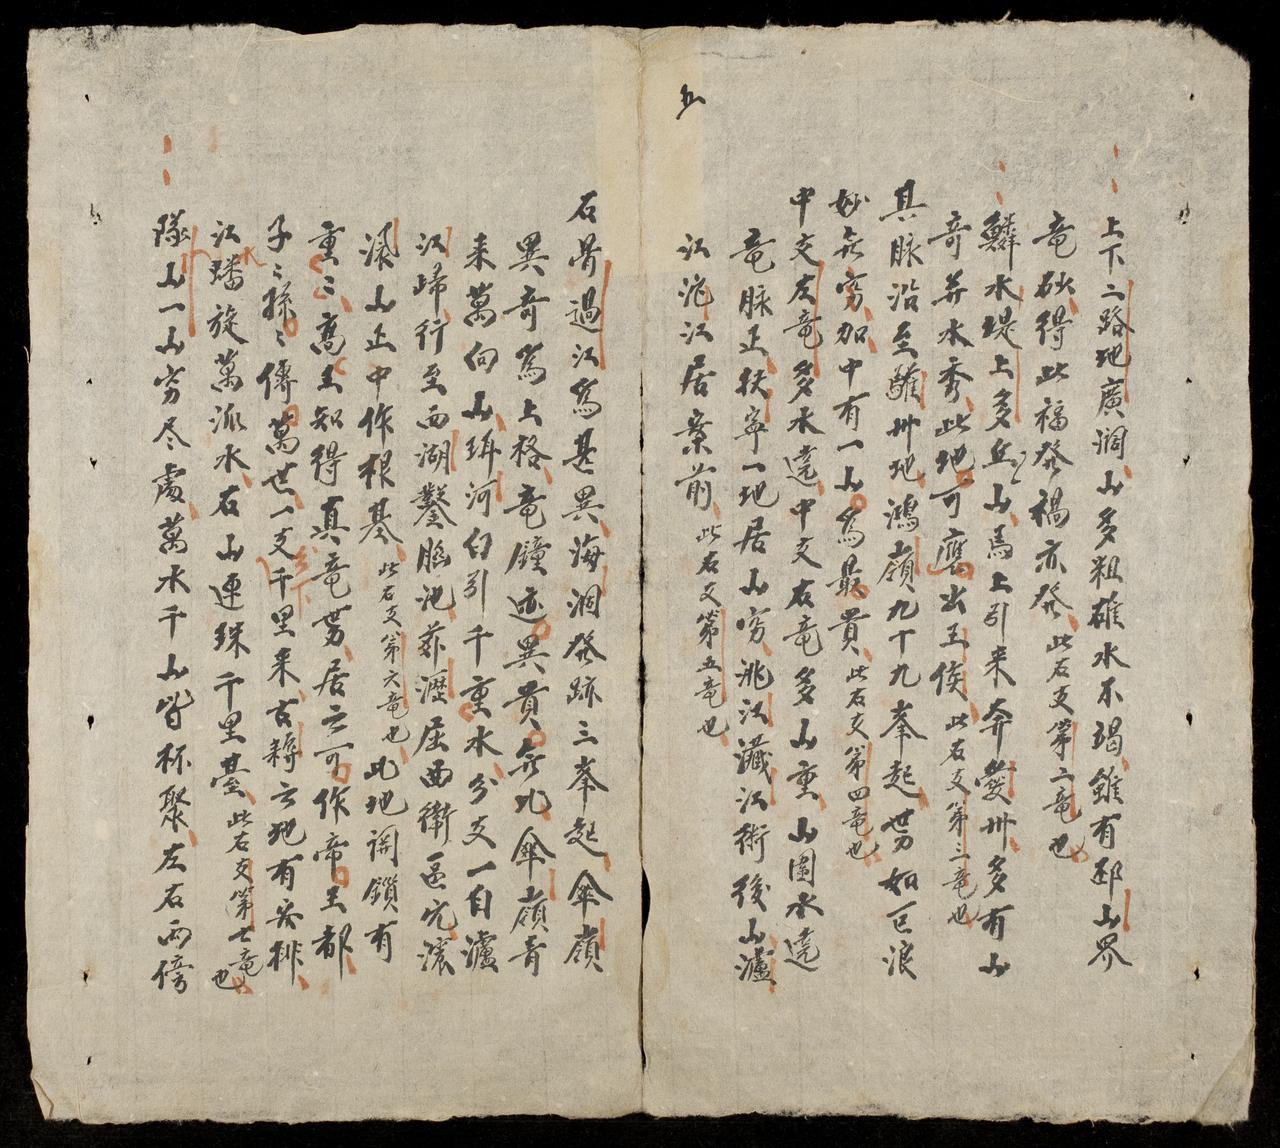 五
上下二路地廣濶山多粗雄水不竭雖有邳山界
竜砂得此福發禍亦發此右支第二竜也
鱗水堤上多丘山馬上引来奔愛州多有山
奇并水秀此地可應出王侯此右支第三竜也
具脉沿至驩州地鴻嶺九十九峯起势如巨浪
妙無窮加中有一山為最貴此右支第四竜也
中支左竜多水遶中支右竜多山重山圍水遶
竜脉正扶寧一地居山窮洮江瀛江衛後山瀘
江沱江居案前此右支第五竜也
石骨過江為甚異海涸發跡三峯起傘嶺
異奇為上格竜鐘迹異貴無比傘嶺青
来萬向山珥河句引千重水分支一自瀘
江歸行至西湖鑿腦池蘇瀝屈曲衛區穴濃
濃山丘中作根基此右支第六竜也此地関鎖有
重〻高王知得真竜势居之可作帝王都
子〻孫〻傳萬世一支千里来古耨云地有安排
江蟠旋萬派水石山連珠千里臺此右支第七竜也
隊山一山窮尽處萬水千山皆杯聚左右兩傍